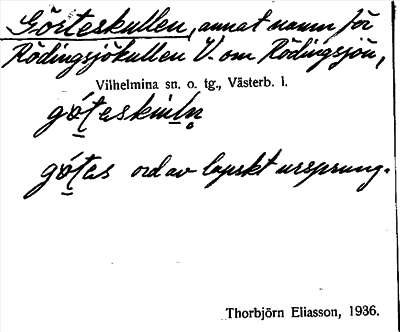 Görteskullen, annat namn för
Rödingsjökullen V. om Rödingsjön,
Vilhelmina sn. o. tg., Västerb. l.
gó̱ṯes
gó̱ṯes ord av lapskt ursprung.
Thorbjörn Eliasson, 1936.